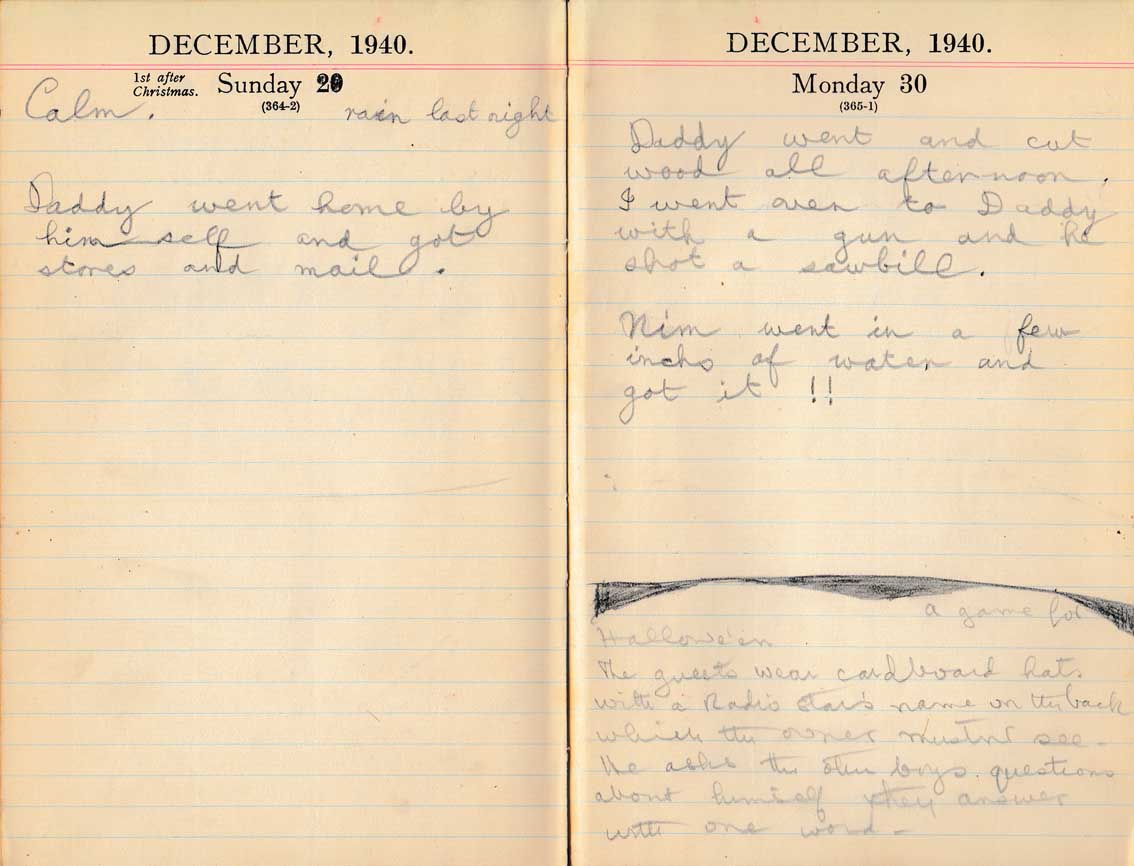 DECEMBER, 1940.
1st after
Christmas.
Sunday 29
(364-2)
Calm. rain last night
Daddy went home by
him self and got
stores and mail.
DECEMBER, 1940.
Monday 30
(365-1)
Daddy went and cut
wood all afternoon.
I went over to Daddy
with a gun and he
shot a sawbill.
Nim went in a few
inchs of water and
got it !!
a game for
Hallowe'en
The guests wear cardboard hats
with a Radio star's name on the back
which the owner mustn't see -
He asks the other boys questions
about himself they answer
with one word -